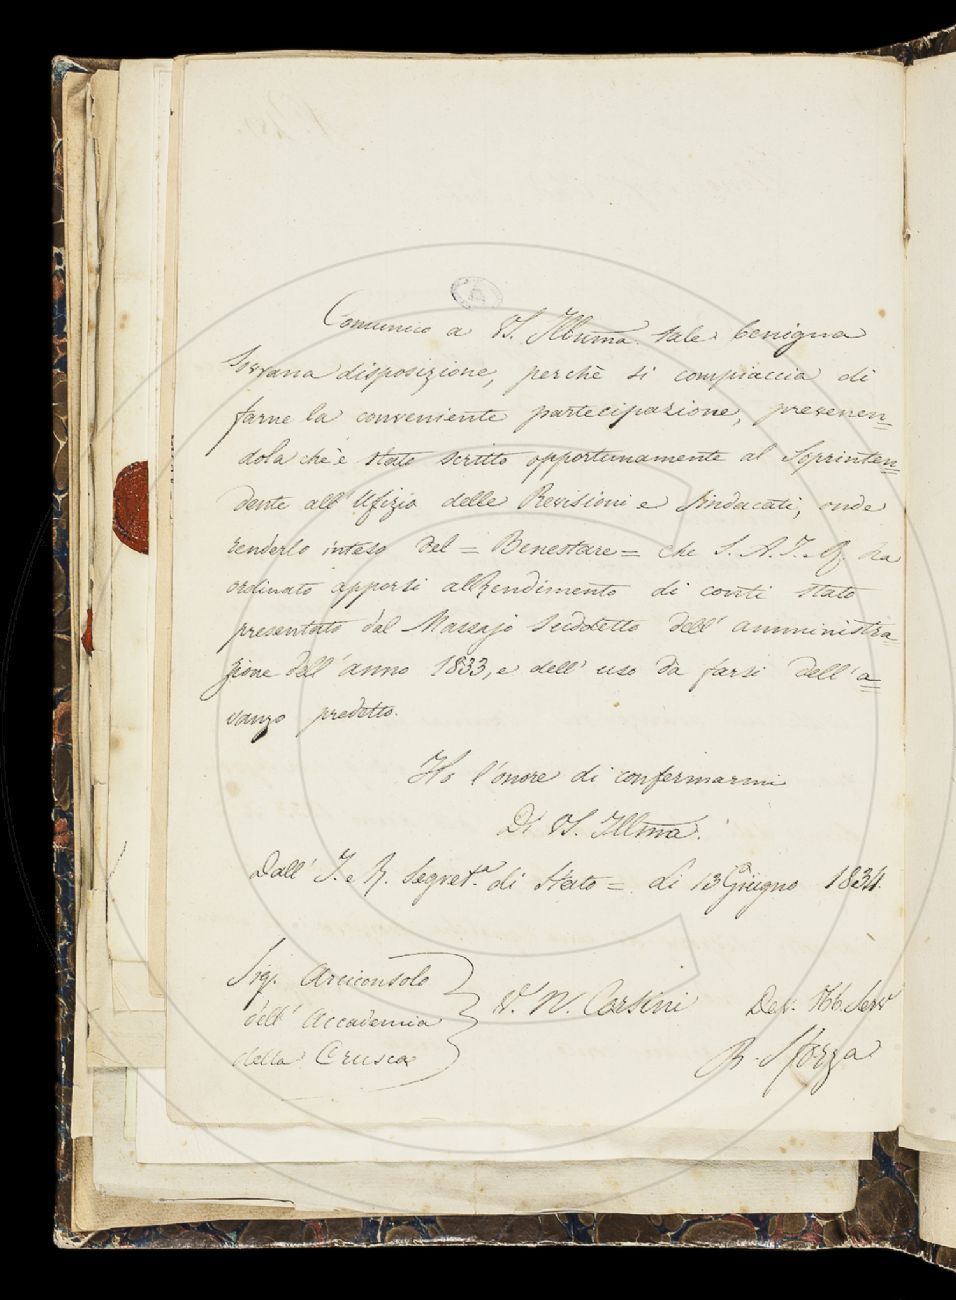 Comunico a VS. Illuma tale benigna
Sovrana disposizione, perchè si compiaccia di
farne la conveniente partecipazione, prevenen=
dola che è stato scritto opportunamente al Soprinten=
dente all' Ufizio delle Revisioni e Sindacati, onde
renderlo inteso del = Benestare = che S. A. I. e R. ha
ordinato apporsi al Rendimento di conti stato
presentato dal Massajo suddetto dell' amministra=
zione dell' anno 1833, e dell' uso da farsi dell' a=
vanzo predetto.
Ho l'onore di confermarmi
Di VS. Illma.
Dall' I. e R. Segret.a di Stato = li 13 Giugno 1834.
Sig. Arciconsolo
dell' Accademia
della Crusca
V. N. Corsini
Dev. Obb. Serv
R. Sforza